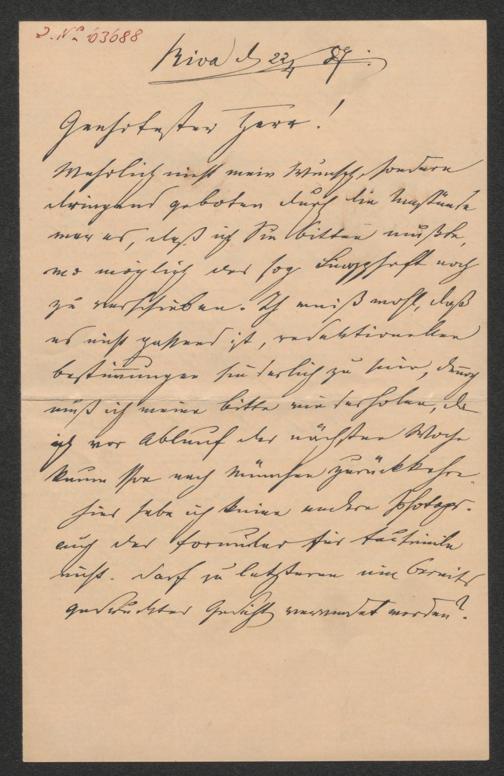 J. Nº 63688
Riva d 22/4 89.
Geehrtester Herr!
Wahrlich nicht mein Wunsch, sondern
dringend geboten durch die Umstände
war es, daß ich Sie bitten mußte,
wo möglich das sog. noch
zu verschieben. Ich weiß wohl, daß
es nicht passend ist, redaktionellen
Bestimmungen hinderlich zu sein, dennoch
muß ich meine Bitte wiederholen, da
ich vor Ablauf der nächsten Woche
kaum nach München zurückkehre.
Hier habe ich keine andere Photogr.
auch das Formular für Facsimile
nicht. Darf zu letzterem ein bereits
gedrucktes Gedicht verwendet werden?